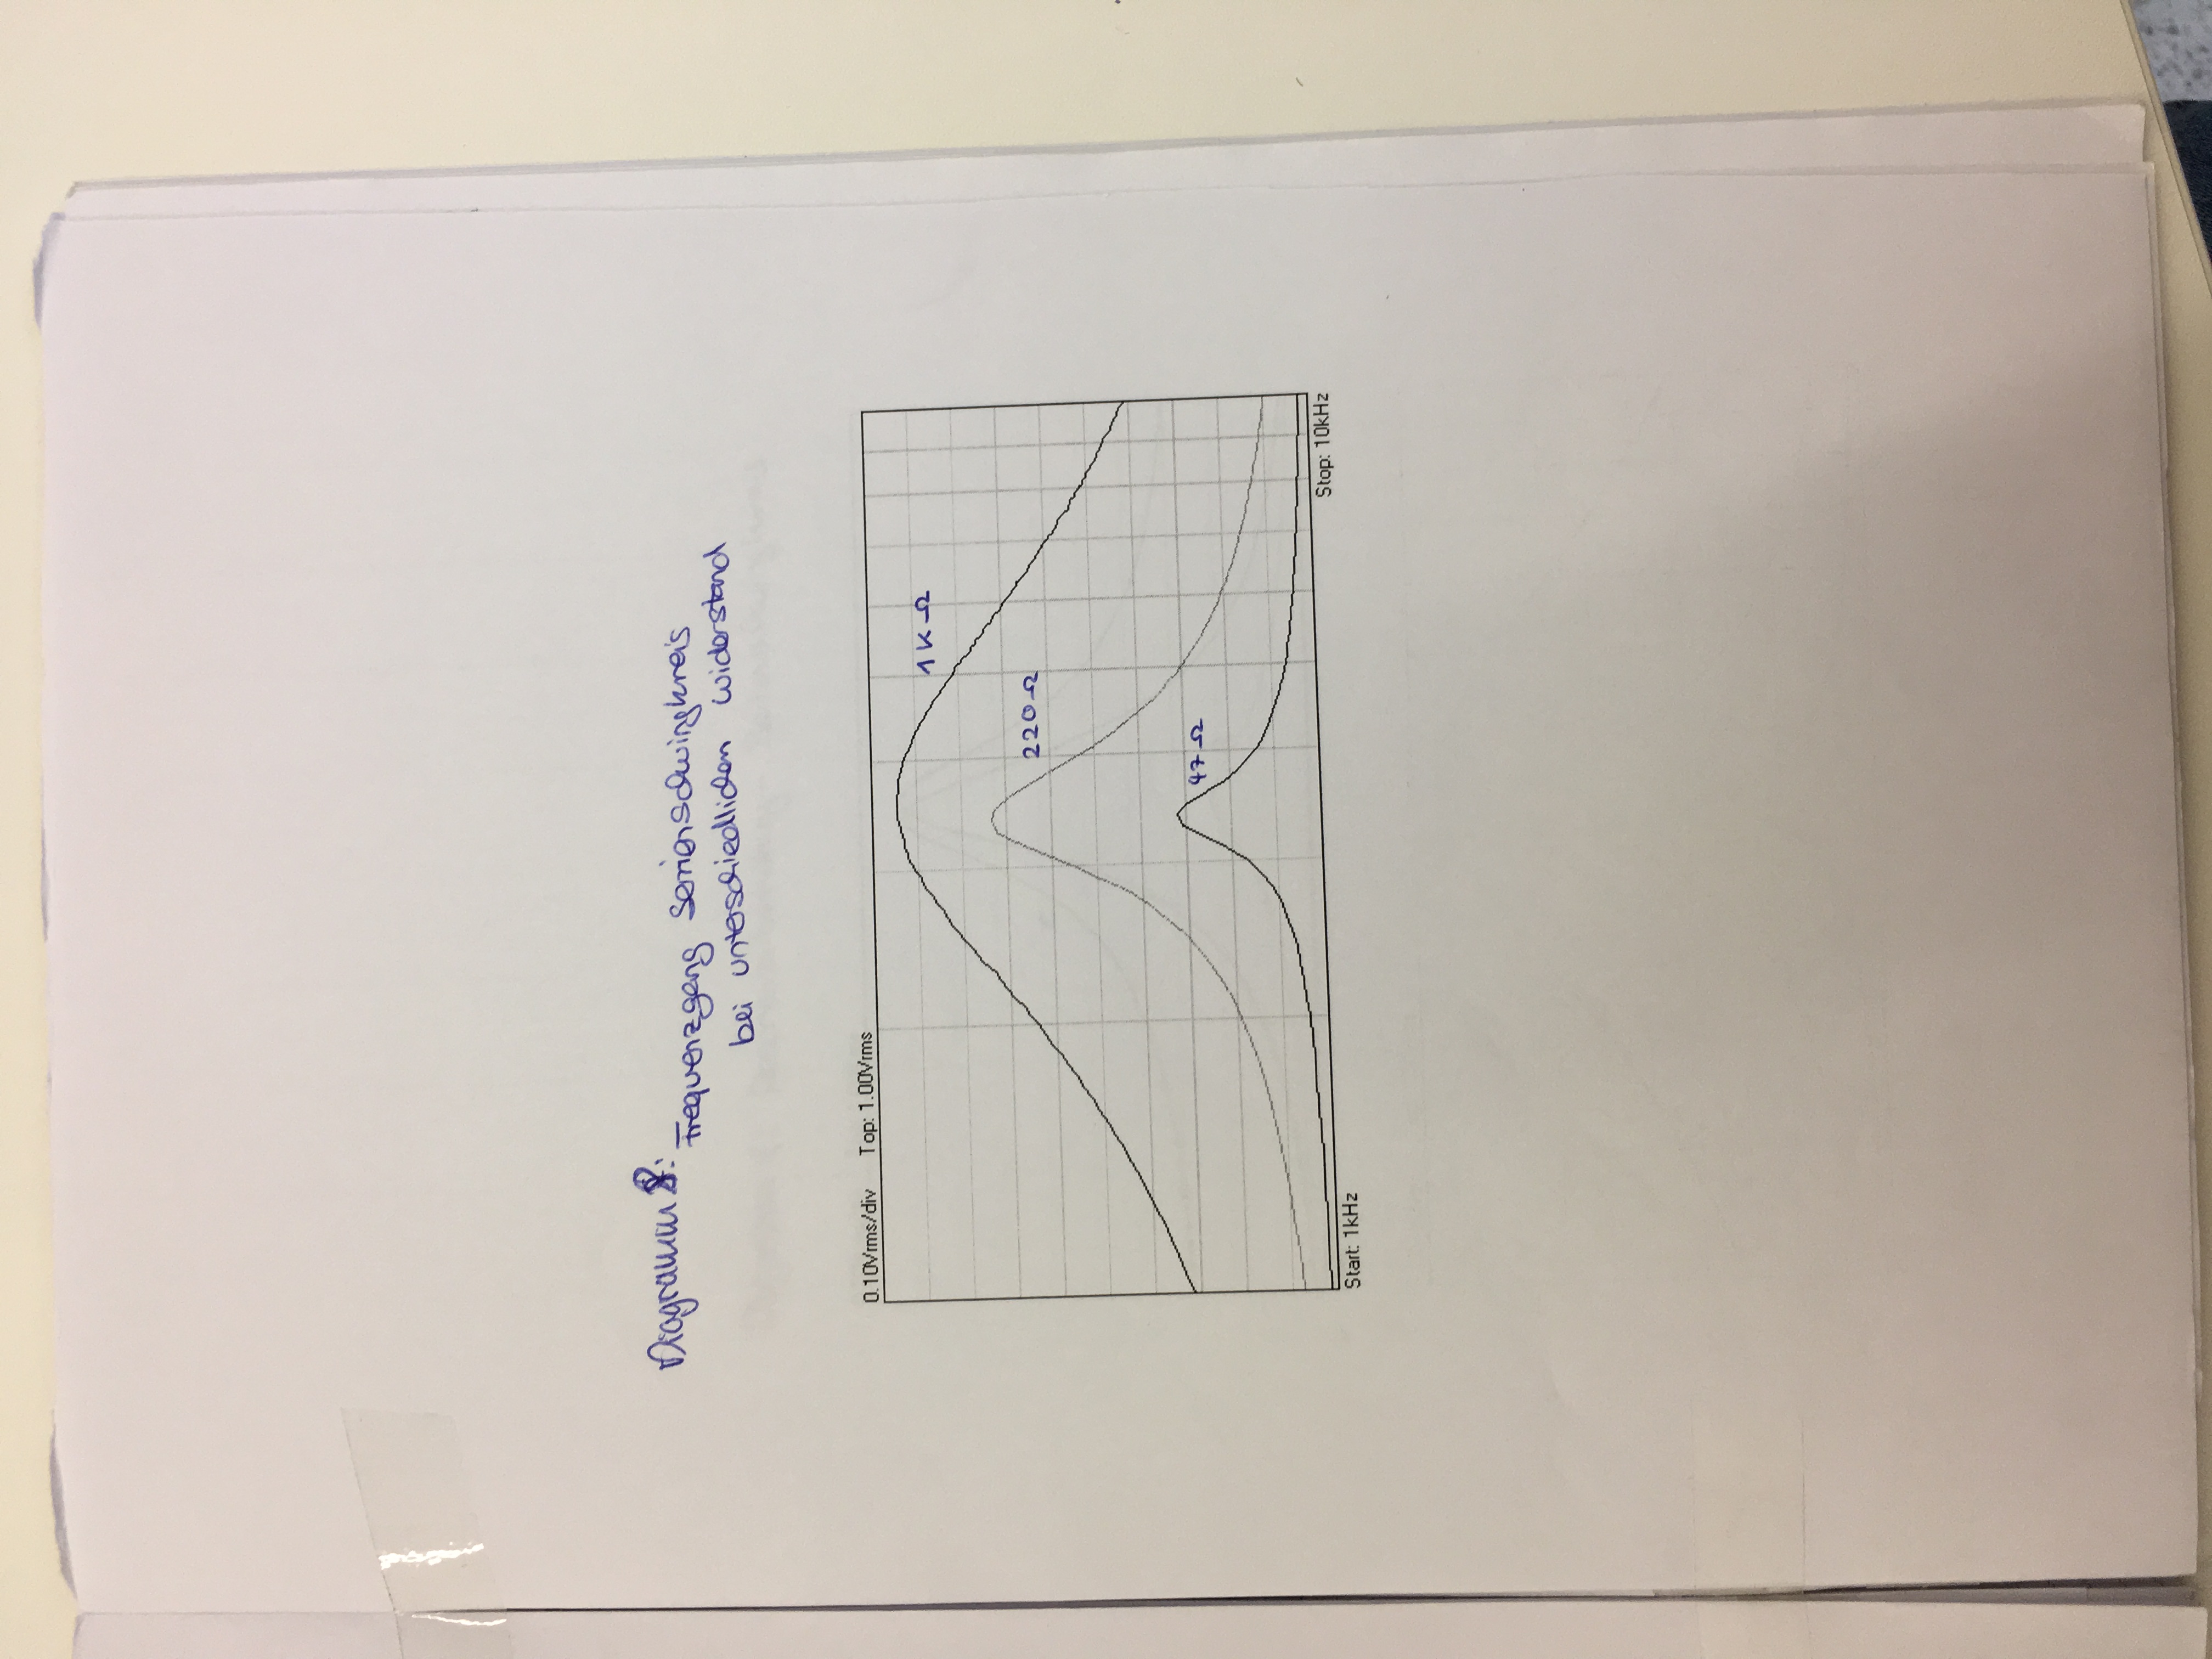 Diagramm 8: Frequenzgang Serienschwingkreis
bei unterschiedlichen Widerstand
0.10Vrms/div Top: 1.00Vrms
1KΩ
220Ω
47Ω
Start: 1kHz
Stop: 10kHz